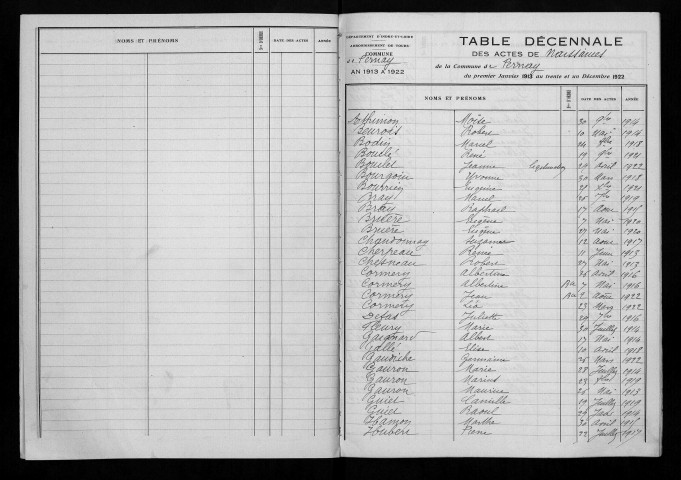 NOMS ET PRÉNOMS DATE DES ACTES ANNÉE
DÉPARTEMENT D'INDRE-ET-LOIRE
ARRONDISSEMENT DE TOURS
COMMUNE
de Pernay
AN 1913 A 1922
TABLE DÉCENNALE
DES ACTES DE Naissances
de la Commune de Pernay
du premier Janvier 1913 au trente et un Décembre 1922
NOMS ET PRÉNOMS DATE DES ACTES ANNÉE
Moïse 30 9bre 1914
Robert 10 Mai 1914
Bodin Marcel 1918
Bouclé René 19 9bre 1921
Boulet Jeanne 24 Avril 1922
Bourgoin Yvonne 30 Mars 1918
Bourrien Eugène 1921
Bray Marcel 26 7bre 1919
Bray Raphael 17 Aout
Bruère Eugène 7 Mai 1920
Bruère Eugène 27 Mai 1920
Chandonnay Suzanne 12 Aout 1917
Cherpeau René 11 Juin 1913
Chesneau Robert 27 Mai 1913
Cormery Albertine 26 Avril 1916
Cormery Albertine Ra 7 Mai 1916
Cormery Jean Ra 2 Aout 1922
Cormery Léa 23 Mars 1922
Juliette 7bre 1916
Fleury Marie 30 Juillet 1914
Gaignard Albert 17 Mai 1914
Gallé Elise 10 Avril 1918
Gaudiche Germaine 26 Mars 1922
Gauron Marie 28 Juillet 1914
Gauron Marius 1919
Gauron Maurice 26 Mai 1913
Guiet Camille 19 Juillet 1919
Guiet Raoul 1914
Hamon Marthe 30 Avril
Joubert 22 Juillet 1917